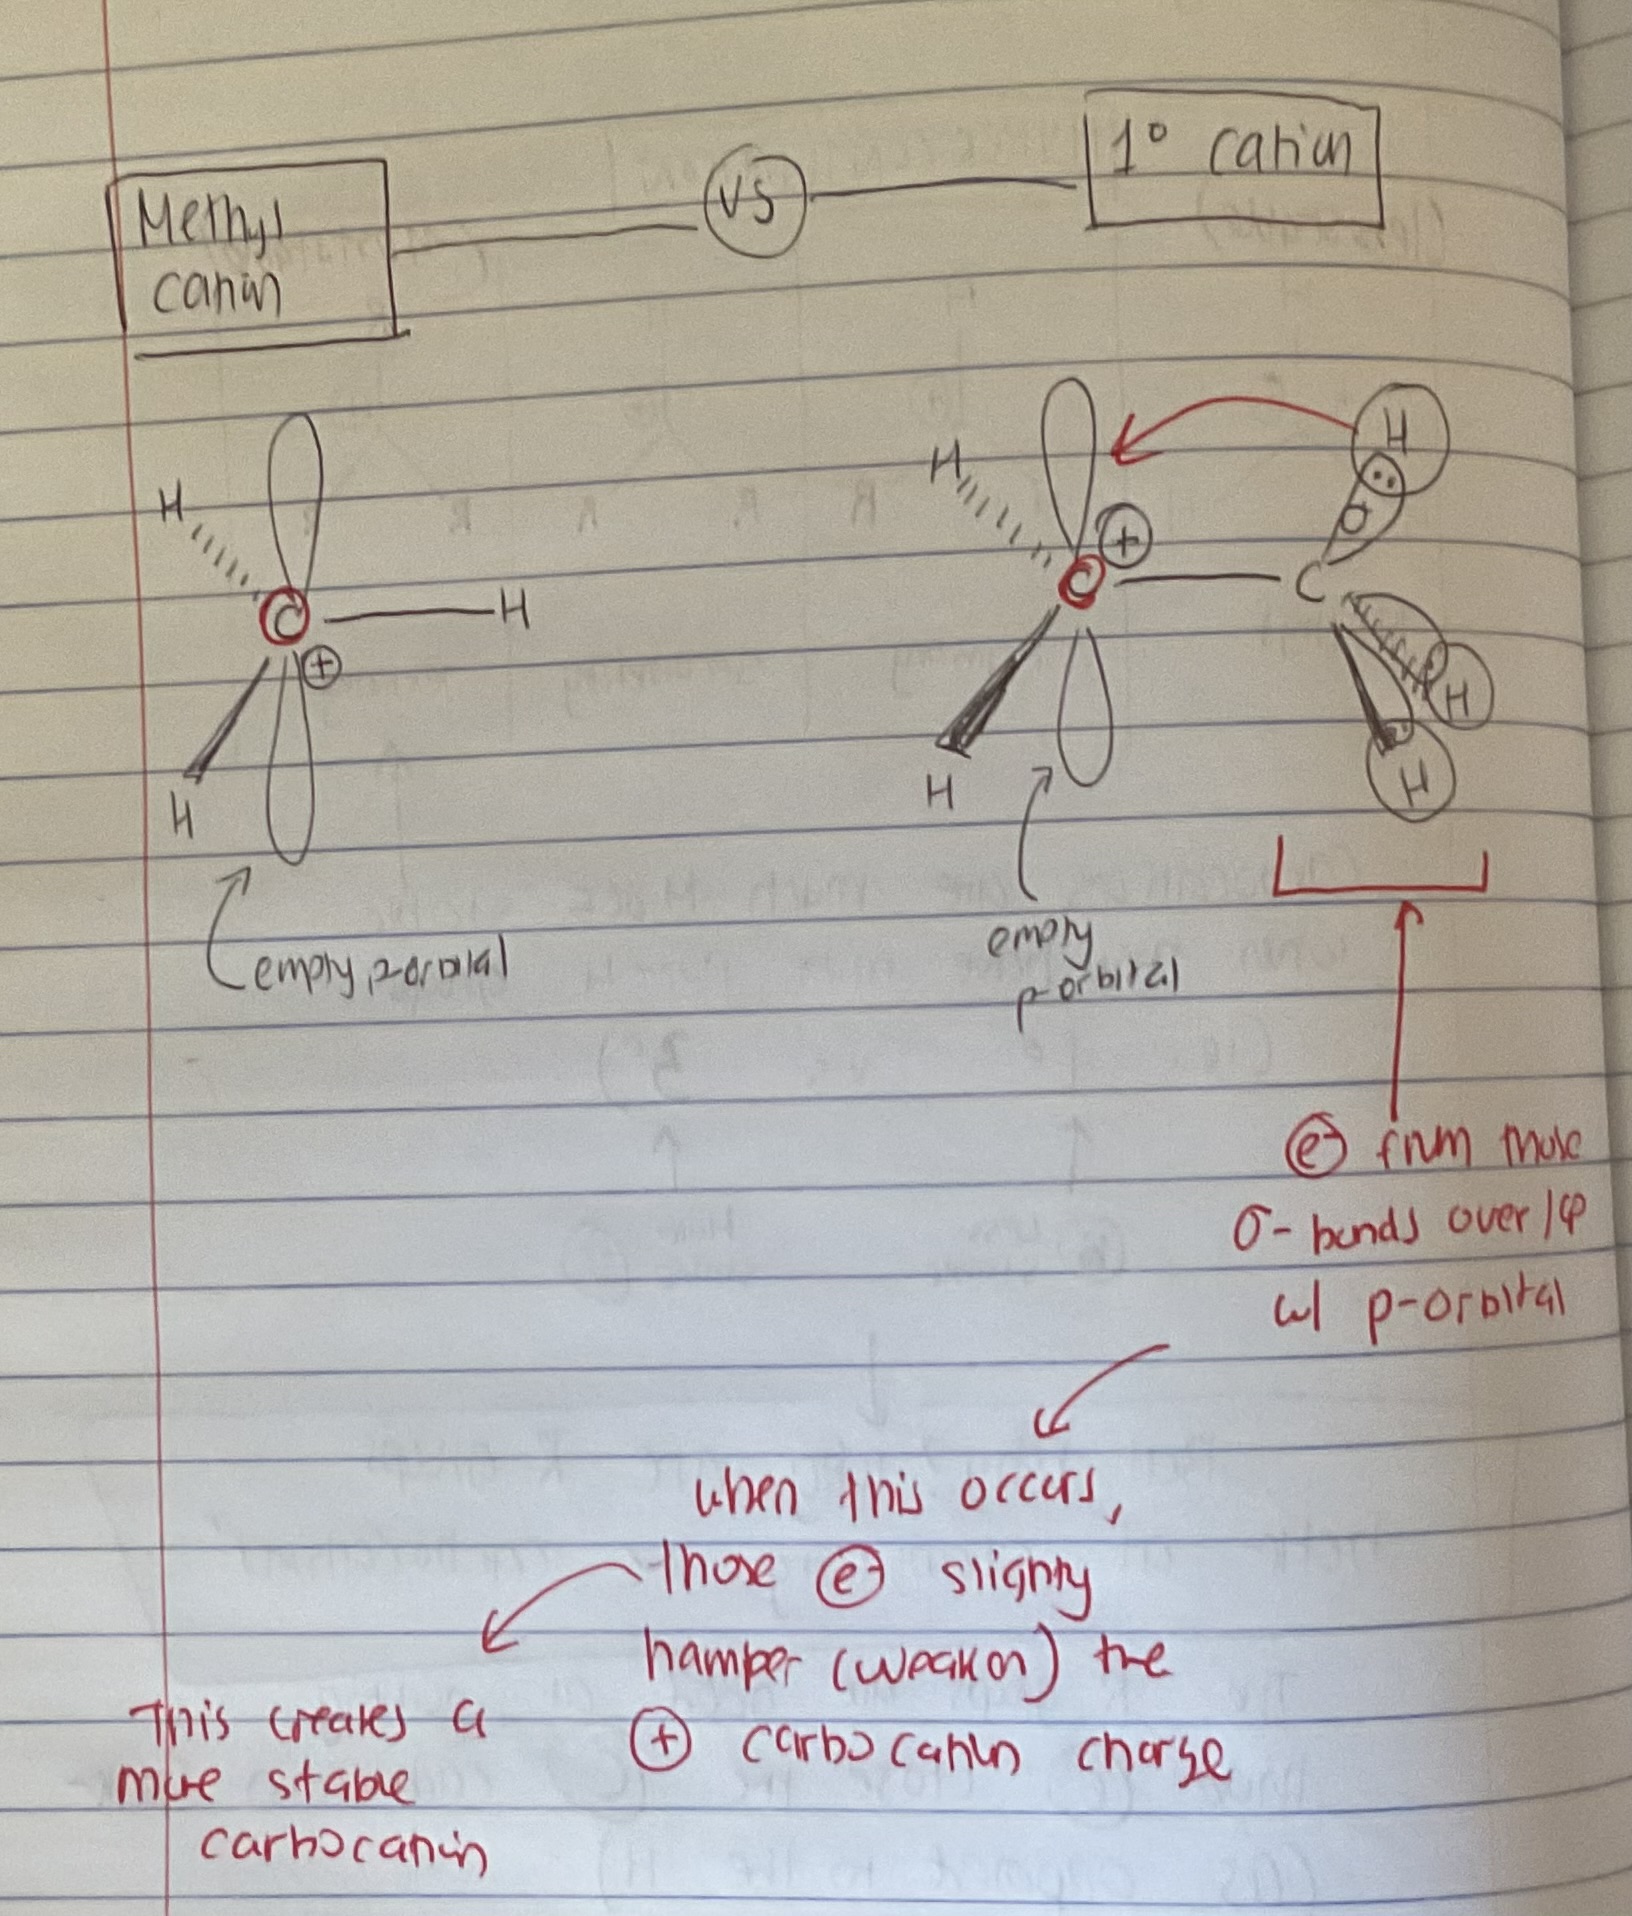 Methyl
cation
VS
1° cation
H
C
H
+
H
empty p-orbital
H
C
+
H
C
H
σ
H
H
empty
p-orbital
e- from those
σ-bonds overlap
w/ p-orbital
when this occurs,
those e- slightly
hamper (weaken) the
+ carbocation charge
This creates a
more stable
carbocation